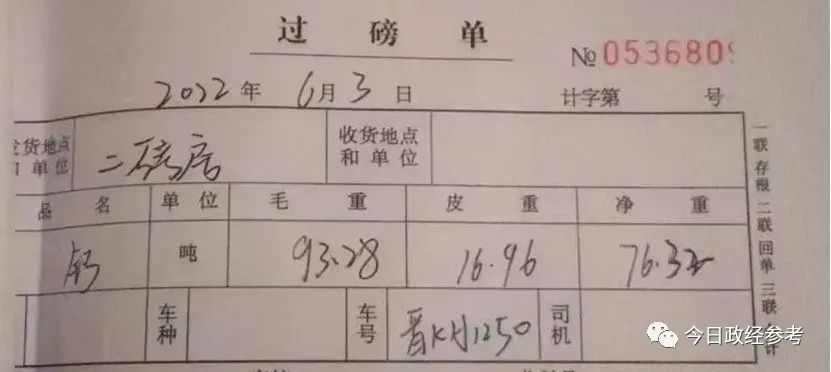 过磅单
№ 0536809
2022年6月3日 计字第 号
发货地点和单位 二砖店 收货地点和单位
品名 单位 毛重 皮重 净重
钙 吨 93.28 16.96 76.32
车种 车号 晋KH1250 司机
一联存根 二联回单 三联 计
今日政经参考